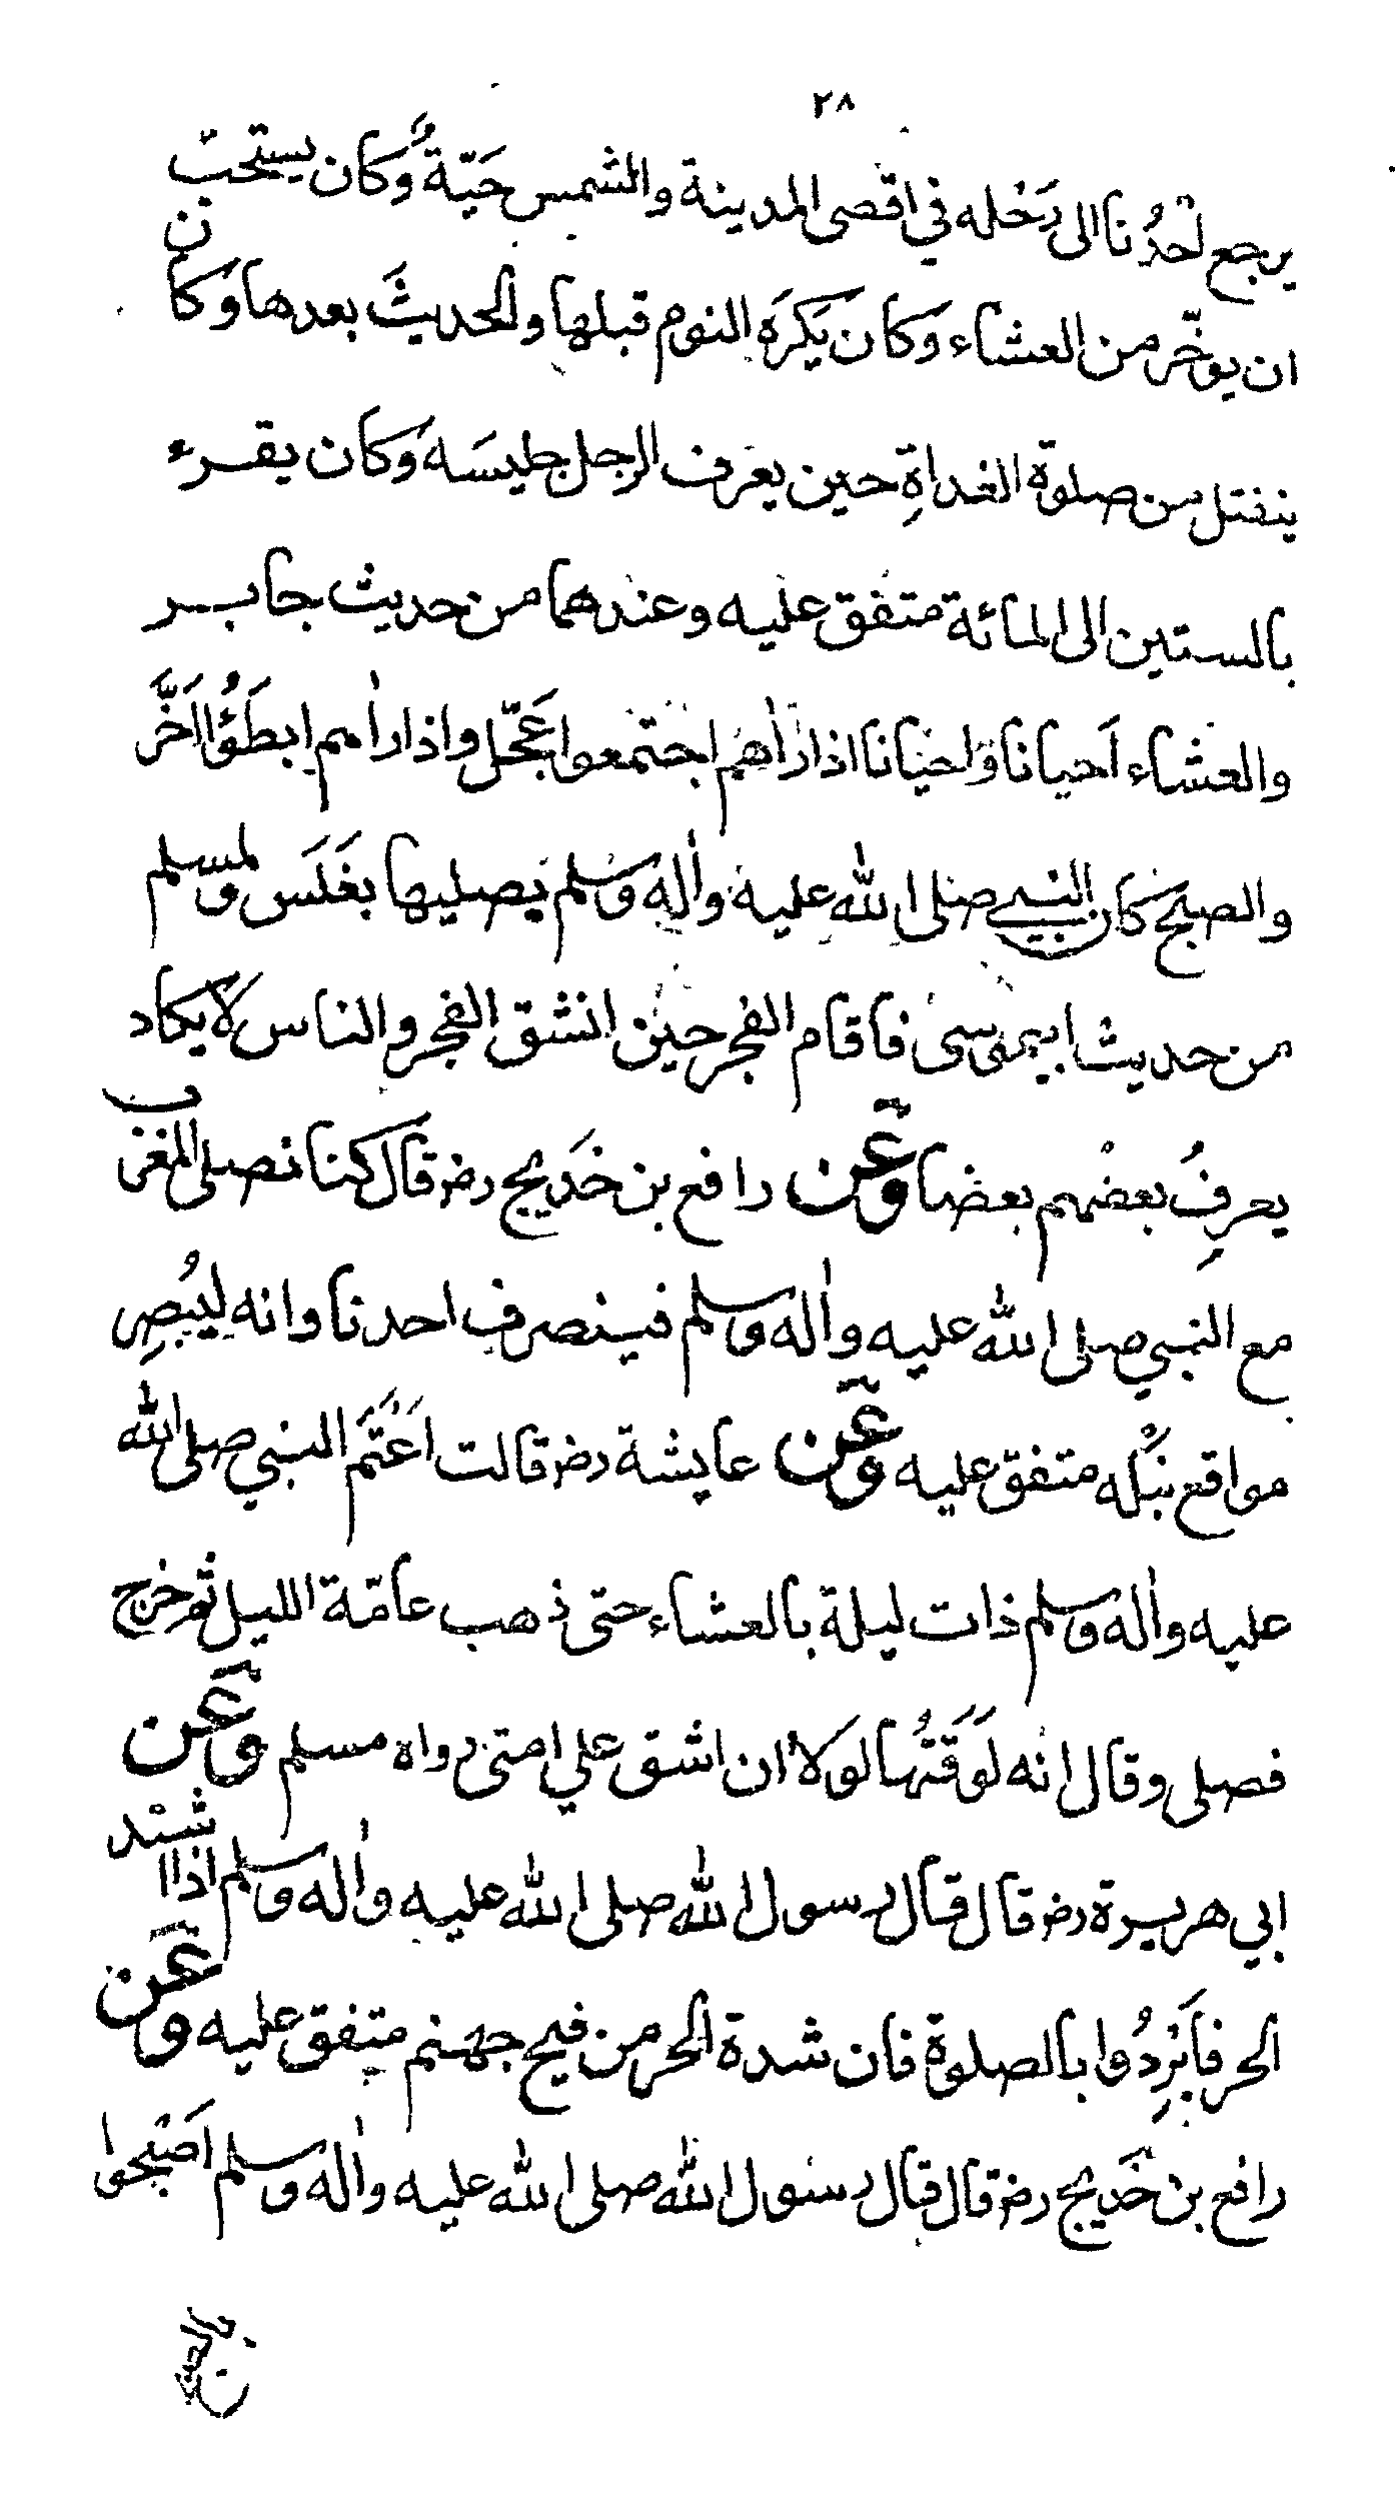 ٢٨
يرجع احَدُنا الى رَحْله في اقصى المدينة والشمس حَيّةٌ وَكان يستحبّ
ان يوخّر من العشاء وَكان يَكرَه النوم قبلها والحديثَ بعدها وَكان
ينفتل من صلوة الغداةِ حين يعرف الرجل جليسَه وَكان يقرء
بالستين الى المائة متفق عليه وعندهما من حديث جابر
والعشاء اَحيانا وَاحيانا اذا رَاٰهم اجتمعوا عَجّل واذا راٰهم ابطَؤُا اَخَّرَ
والصبح كان النبي صلى الله عليه واٰله وسلم يصليها بغَلَس ولمسلم
من حديث ابي موسى فاقام الفجر حين انشق الفجر والناس لَا يكاد
يعرِفُ بعضهم بعضا وَعَن رافع بن خَديج رض قال كنا نصلى المغرب
مع النبي صلى الله عليه واٰله وسلم فينصرف احدنا وانه ليُبصِر
مواقع نبْله متفق عليه وَعَن عايشة رض قالت اَعْتَمَ النبي صلى الله
عليه واٰله وسلم ذات ليلة بالعشاء حتى ذهب عامّة الليل ثم خرج
فصلى وقال انه لَوَقتُها لَولا ان اشق علي امتى رواه مسلم وَعَن
ابي هريرة رض قال قال رسول الله صلى الله عليه واٰله وسلم اذا اشتد
الحر فاَبْرِدُوا بالصلوة فان شدة الحر من فيح جهنم متفق عليه وَعَن
رافع بن خَديج رض قال قال رسول الله صلى الله عليه واٰله وسلم اَصْبحوا